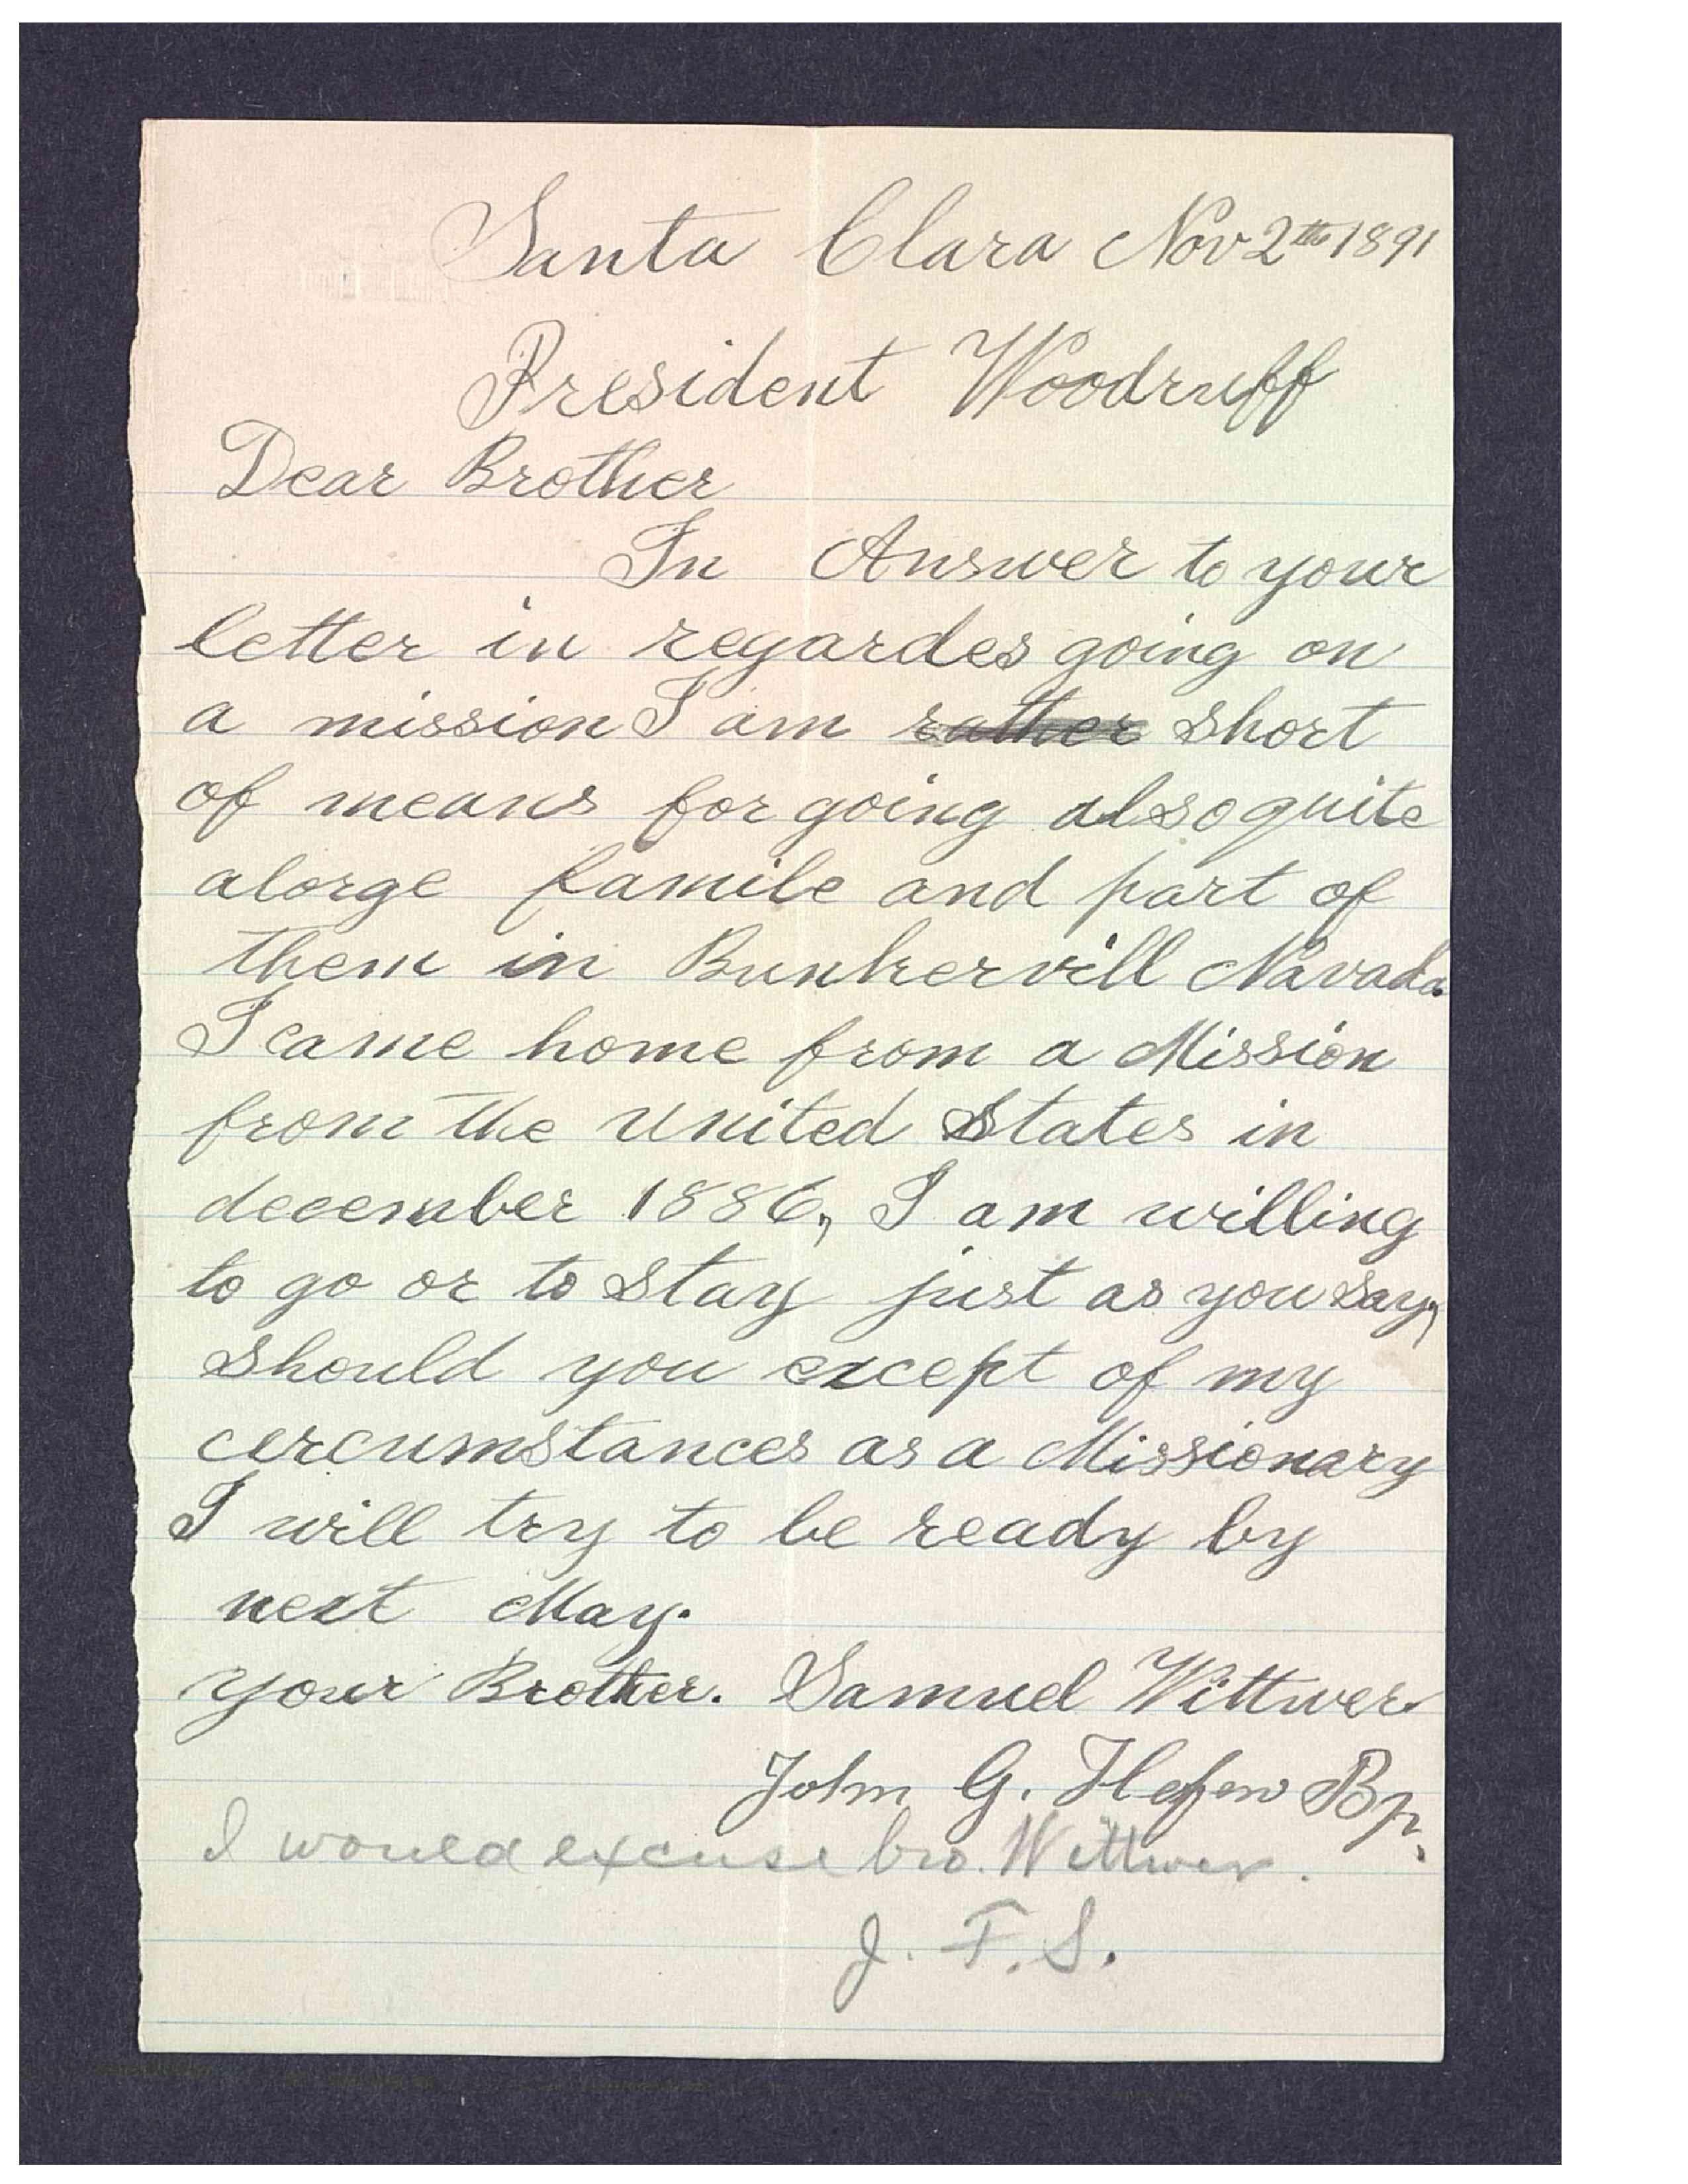 Santa Clara Nov 2th 1891
President Woodruff
Dear Brother
In Answer to your
letter in regardes going on
a mission I am rather short
of means for going also quite
alorge famile and part of
them in Bunkervill Navada
I came home from a Mission
from the United States in
december 1886, I am willing
to go or to stay just as you say,
should you except of my
cercumstances as a Missionary
I will try to be ready by
next May.
your Brother. Samuel Wittwer
John G. Hafen Bp.
I would excuse bro. Wittwer.
J. F. S.